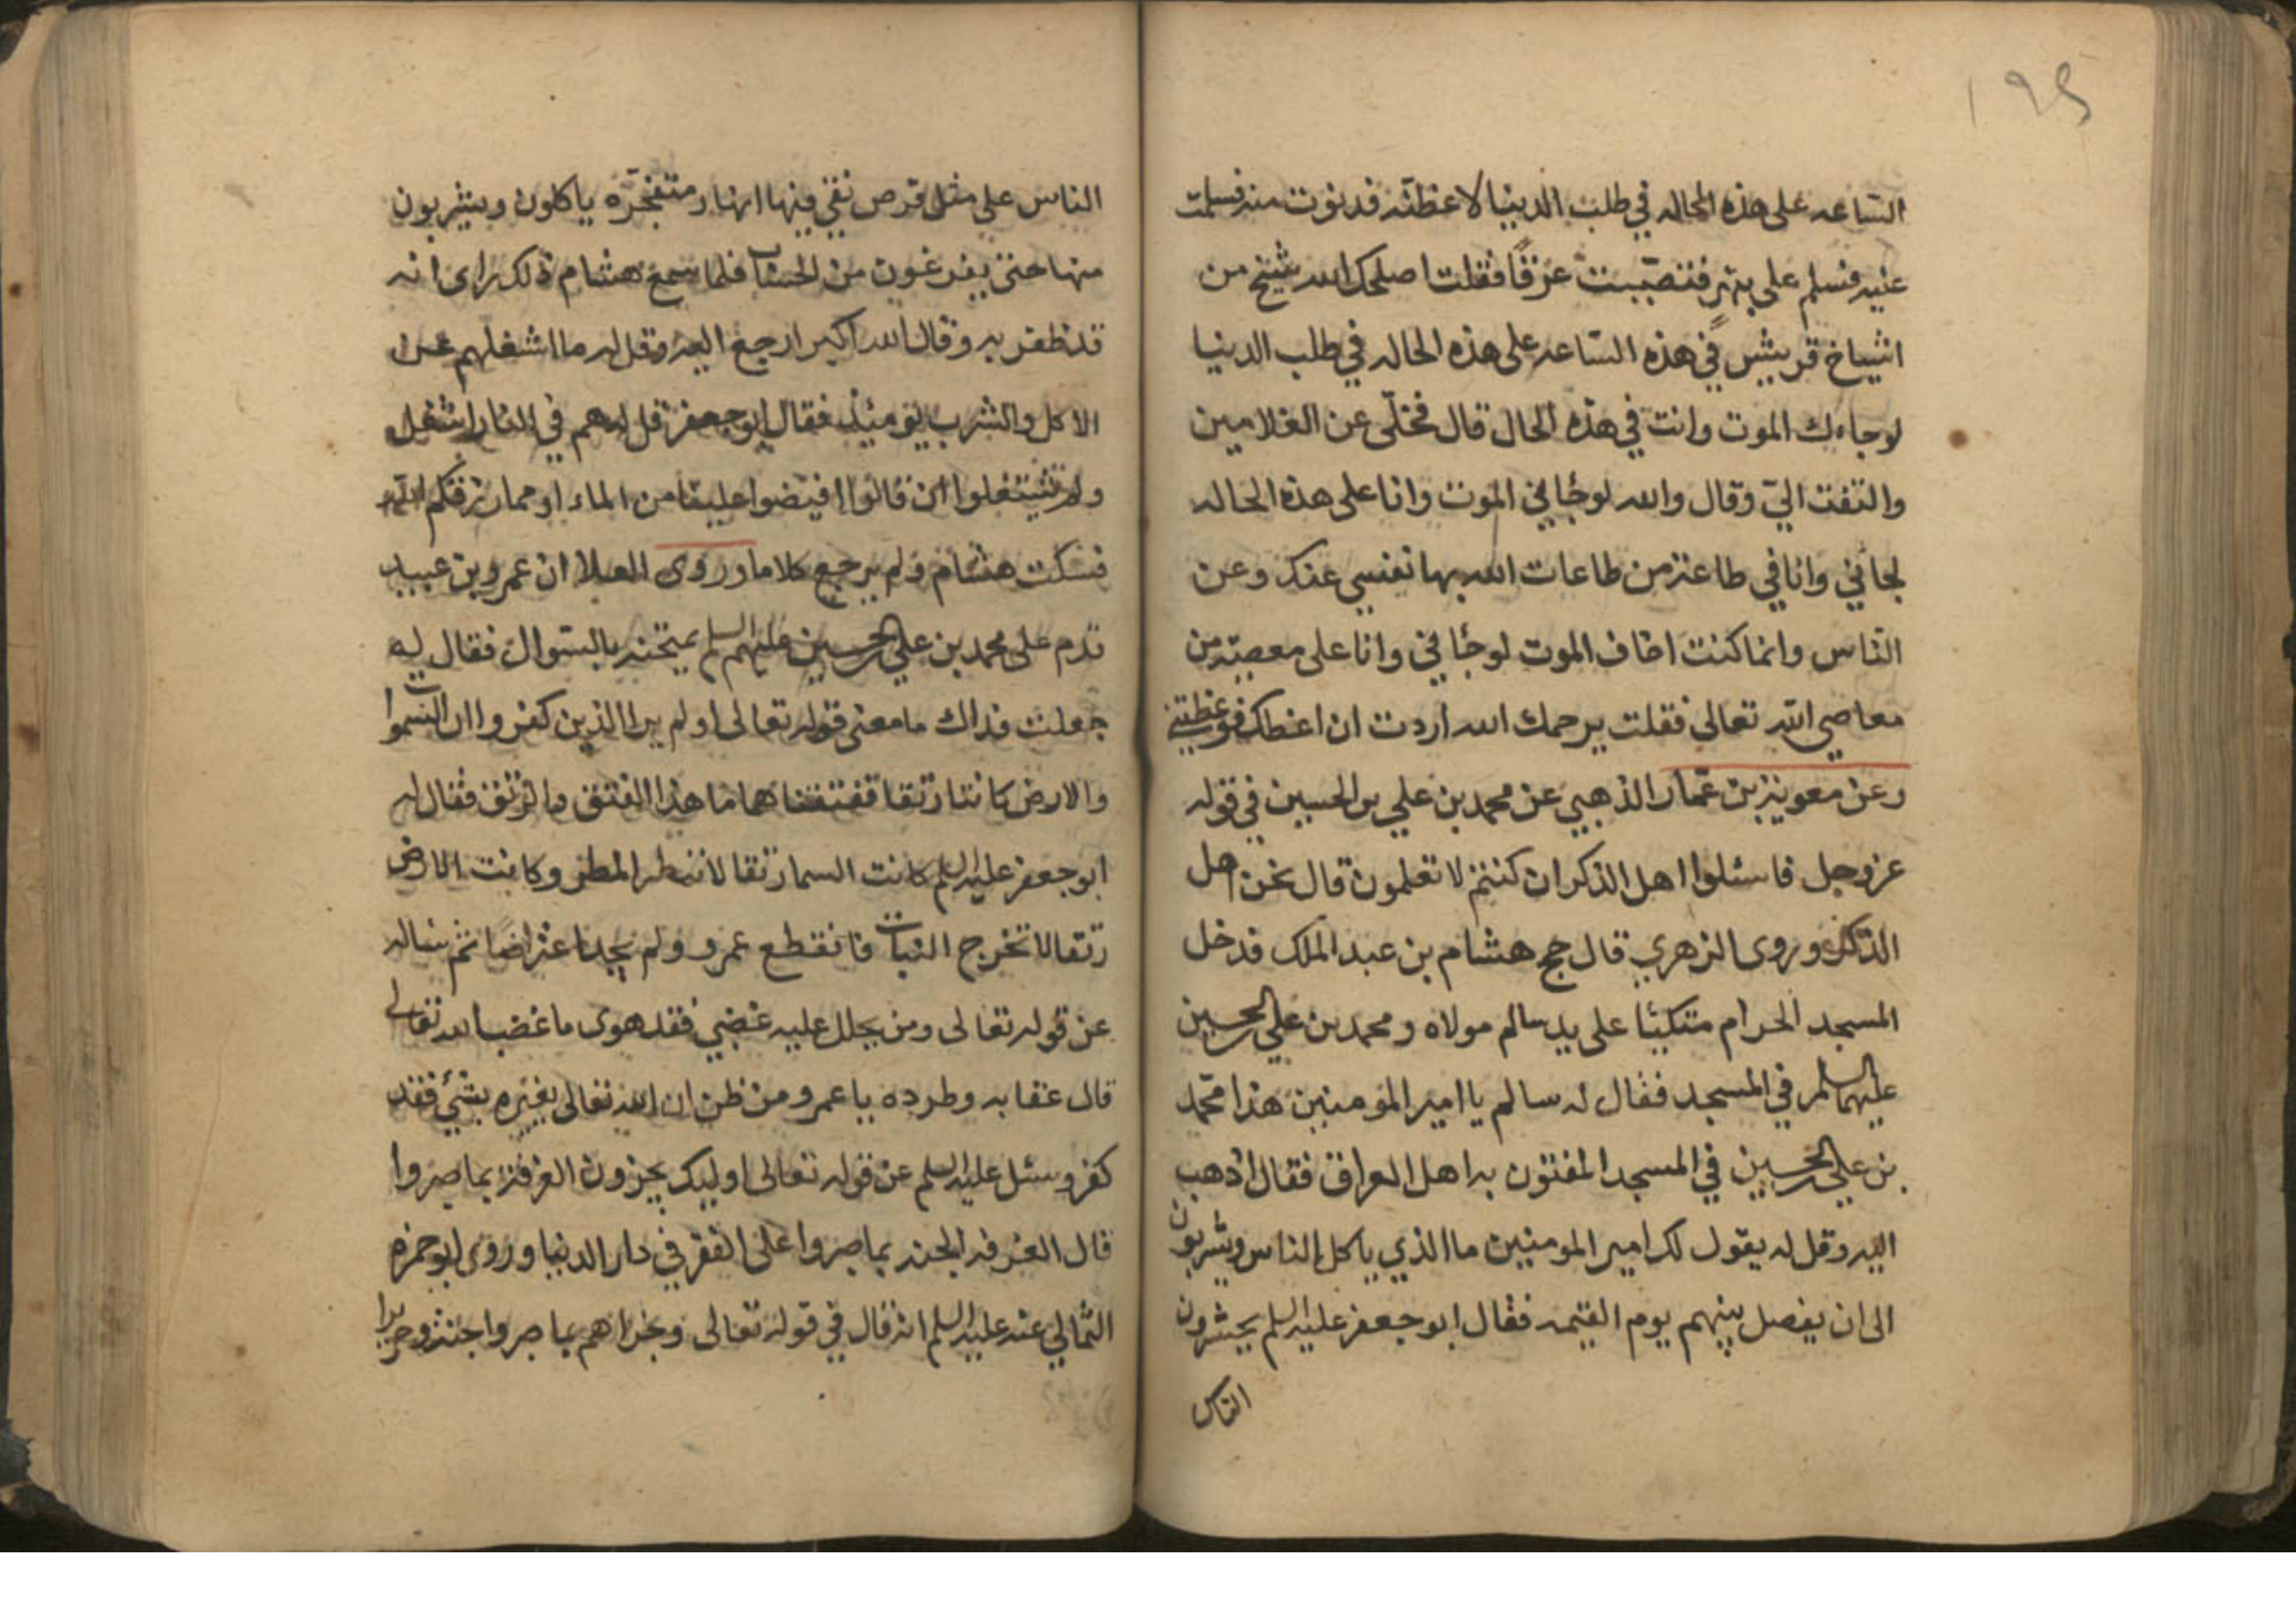 ١٩٤
الساعه على هذه الحاله في طلب الدينا لاعظنه فدنوت منه فسلمت
عليه فسلم على ببهر فتصببت عرقًا فقلت اصلحك الله شيخ من
اشياخ قريش في هذه الساعه على هذه الحاله في طلب الدينا
لوجاءك الموت وانت في هذه الحال قال فخلّى عن الغلامين
والتفت اليّ وقال والله لوجاني الموت وانا على هذه الحاله
لجاني وانا في طاعة من طاعات الله بها نفسي عنك وعن
الناس وانما كنت اخاف الموت لوجاني وانا على معصية من
معاصي الله تعالى فقلت يرحمك الله اردت ان اعظك فوعظتني
وعن معوية بن عمار الذهبي عن محمد بن علي بن الحسين في قوله
عز وجل فاسئلوا اهل الذكر ان كنتم لا تعلمون قال نحن اهل
الذكر وروى الزهري قال حج هشام بن عبد الملك فدخل
المسجد الحرام متكئا على يد سالم مولاه ومحمد بن علي بن الحسين
عليهما السلم في المسجد فقال له سالم يا امير المومنين هذا محمد
بن علي بن الحسين في المسجد المفتون به اهل العراق فقال اذهب
اليه وقل له يقول لك امير المومنين ما الذي ياكل الناس ويشربون
الى ان يفصل بينهم يوم القيمه فقال ابو جعفر عليه السلم يحشرون
الناس
الناس على مثل قرص نقي فيها انهار متفجرّه ياكلون ويشربون
منها حتى يفرغون من الحساب فلما سمع هشام ذلك راى انه
قد ظفر به وقال الله اكبر ارجع اليه وقل له ما اشغلهم عن
الاكل والشرب يومئذ فقال ابو جعفر قل له هم في النار اشغل
ولم يشتغلوا ان قالوا افيضوا علينا من الماء او مما رزقكم الله
فسكت هشام ولم يرجع كلاما وروى العلا ان عمرو بن عبيد
قدم على محمد بن علي بن الحسين عليهم السلم يمتحنه بالسوال فقال له
جعلت فداك ما معنى قوله تعالى اولم ير الذين كفروا ان السموات
والارض كانتا رتقا ففتقناهما ما هذا الفتق والرتق فقال له
ابو جعفر عليه السلم كانت السما رتقا لا تنطر المطر وكانت الارض
رتقا لا تخرج النبات فانقطع عمرو ولم يجد اعتراضًا ثم ساله
عن قوله تعالى ومن يحلل عليه غضبي فقد هوى ما غضب الله تعالى
قال عقابه وطرده يا عمرو من ظن ان الله تعالى يغيره بشئ فقد
كفر وسئل عليه السلم عن قوله تعالى اوليك يجزون الغرفة بما صبروا
قال الغرفه الجنه بما صبروا على الفقر في دار الدنيا وروى ابو حمزه
الثمالي عنه عليه السلم انه قال في قوله تعالى وجزاهم بما صبروا جنة وحريرا